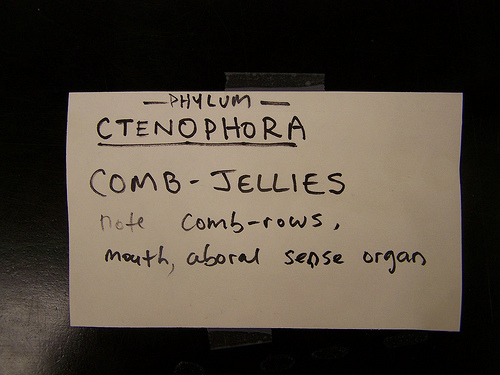 — PHYLUM —
CTENOPHORA
COMB-JELLIES
note comb-rows,
mouth, aboral sense organ